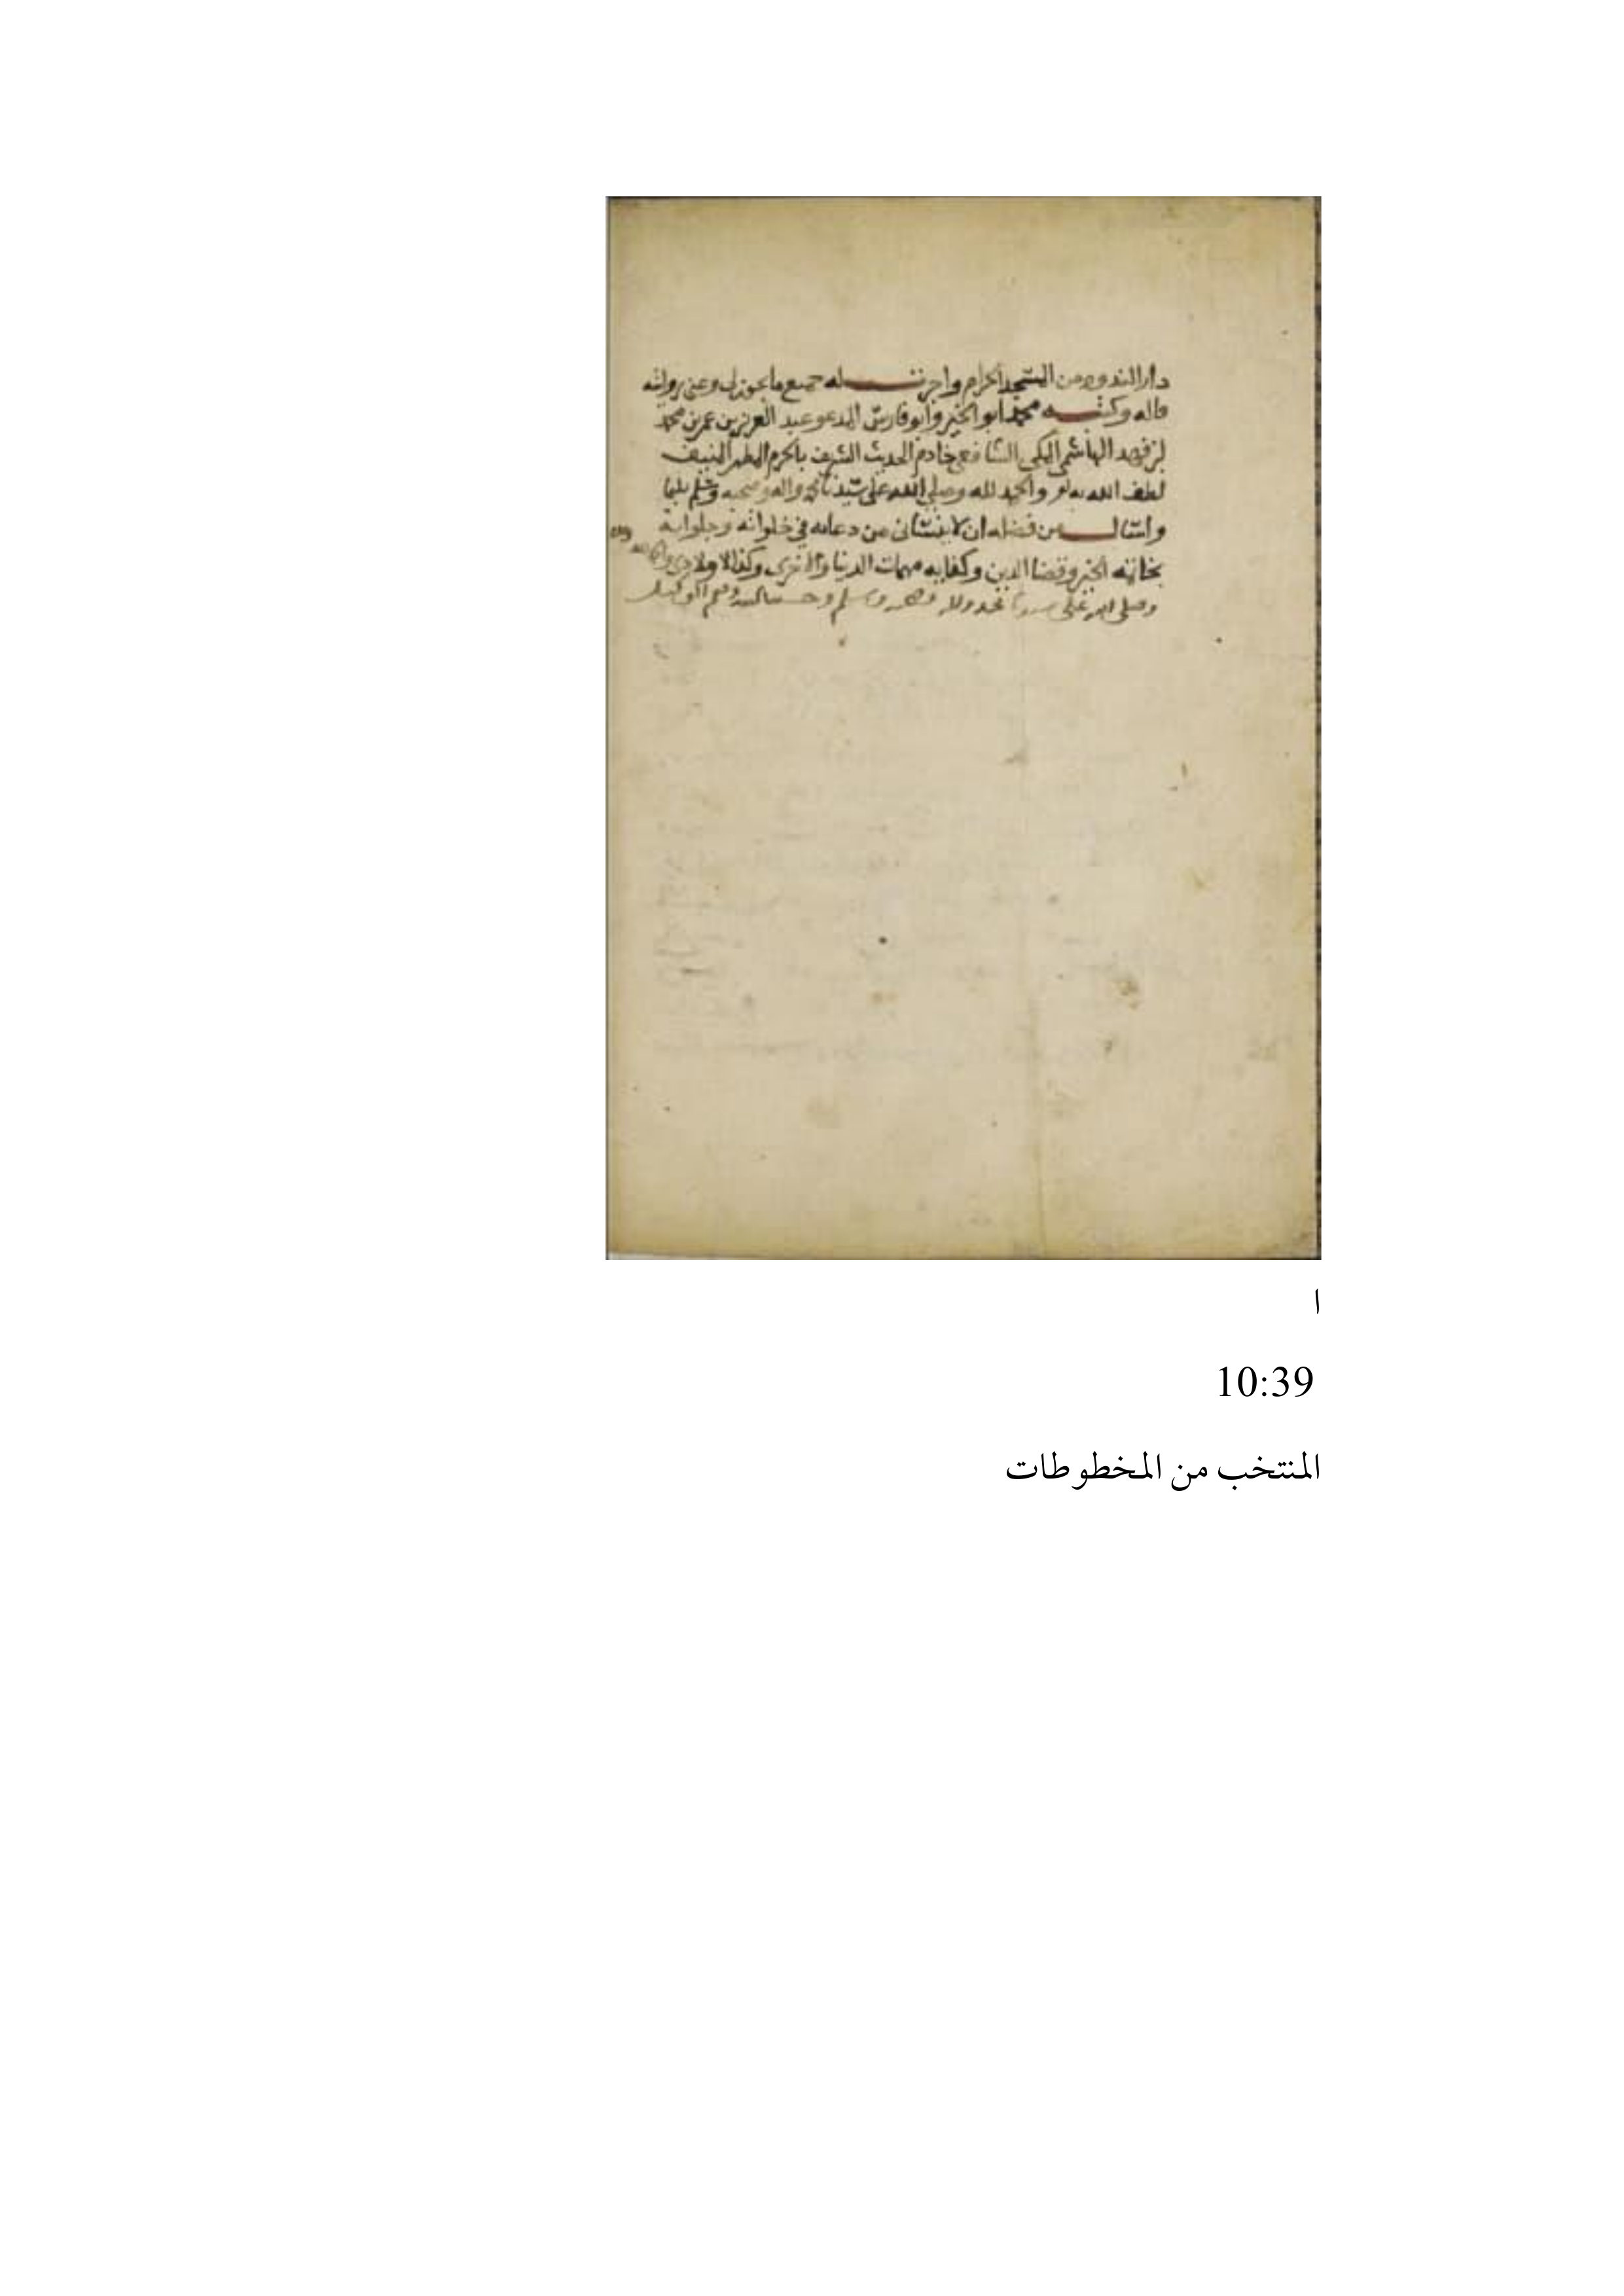 دار الندوة من المسجد الحرام واجزت له جميع ما يجوز لي وعني روايته
قاله وكتبه محمد ابو الخير وابو فارس المدعو عبد العزيز بن عمر بن محمد
بن فهد الهاشمي المكي الشافعي خادم الحديث الشريف بالحرم المطهر المنيف
لطف الله به والحمد لله وصلى الله على سيدنا محمد واله وصحبه وسلم تسليما
واسال من فضله ان لا ينساني من دعائه في خلواته وجلواته
بخاتمة الخير وقضا الدين وكفاية مهمات الدنيا والاخرى وكذا لاولادي
وصلى الله على سيدنا محمد واله وصحبه وسلم وحسبنا الله ونعم الوكيل
ا
10:39
المنتخب من المخطوطات